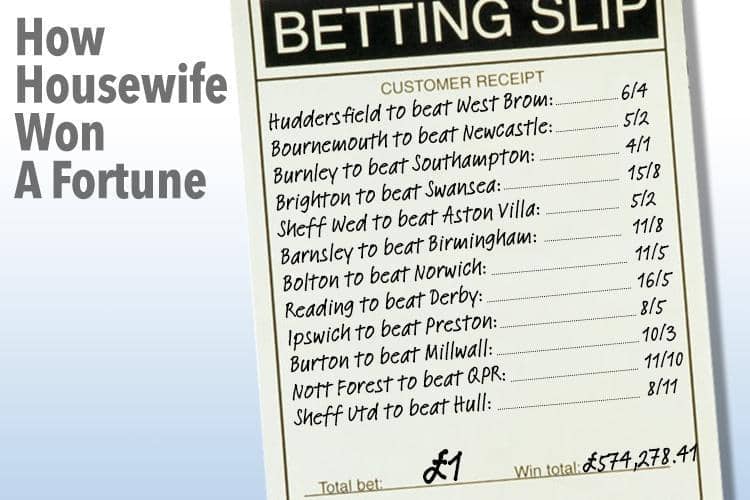 How
Housewife
Won
A Fortune
BETTING SLIP
CUSTOMER RECEIPT
Huddersfield to beat West Brom: 6/4
Bournemouth to beat Newcastle: 5/2
Burnley to beat Southampton: 4/1
Brighton to beat Swansea: 15/8
Sheff Wed to beat Aston Villa: 5/2
Barnsley to beat Birmingham: 11/8
Bolton to beat Norwich: 11/5
Reading to beat Derby: 16/5
Ipswich to beat Preston: 8/5
Burton to beat Millwall: 10/3
Nott Forest to beat QPR: 11/10
Sheff Utd to beat Hull: 8/11
Total bet: £1 Win total: £574,278.41